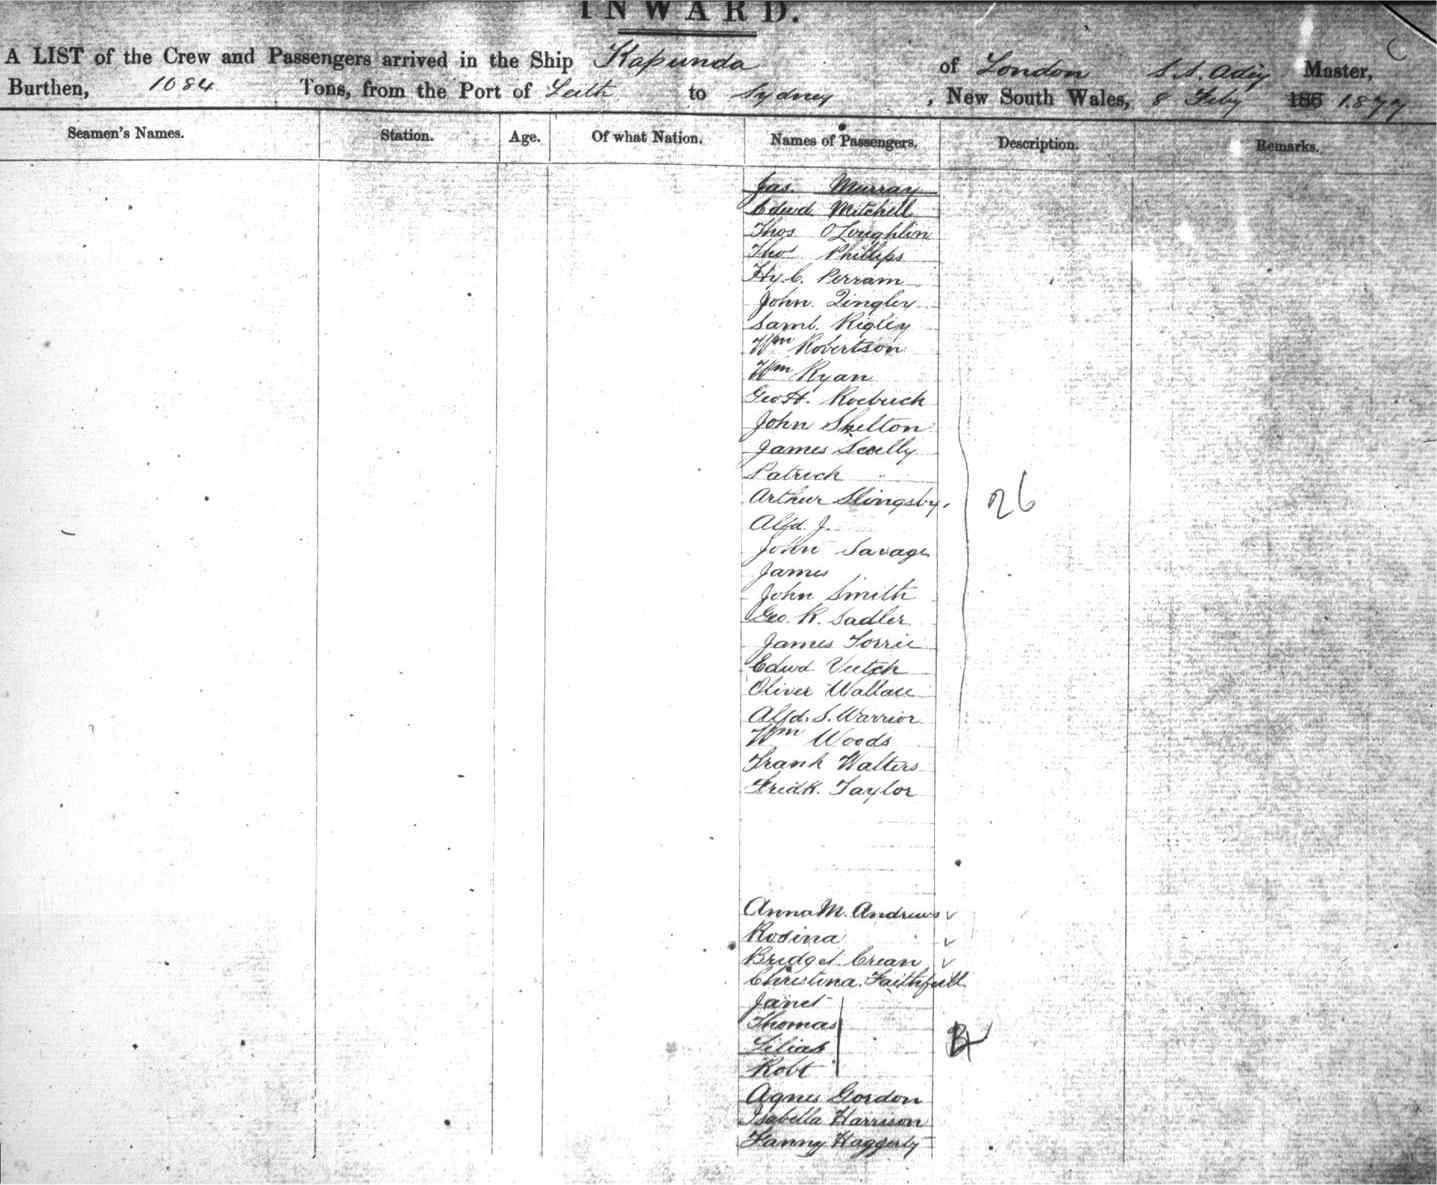 INWARD.
A LIST of the Crew and Passengers arrived in the Ship Kapunda of London S. S. Master,
Burthen, 1084 Tons, from the Port of Leith to Sydney, New South Wales, 8 Feby 186 1877
Seamen's Names. Station. Age. Of what Nation. Names of Passengers. Description. Remarks.
Jas. Murray
Edwd Mitchell
Thos O'Loughlin
Thos Phillips
Hy. C. Perram
John Qingley
Saml. Rigley
Wm Robertson
Wm Ryan
Geo H. Roebuck
John Skelton
James Scully
Patrick "
Arthur Slingsby.
26
Alfd. J.
John Savage
James
John Smith
Geo. R. Sadler
James Torrie
Edwd Veitch
Oliver Wallace
Alfd. S. Warrior
Wm Woods
Frank Walters
Fredk. Taylor
Anna M. Andrews
Rosina
Bridget Crean
Christina Faithfull
Janet
Thomas
Lilias
Robt
Agnes Gordon
Isabella Harrison
Fanny Haggerty